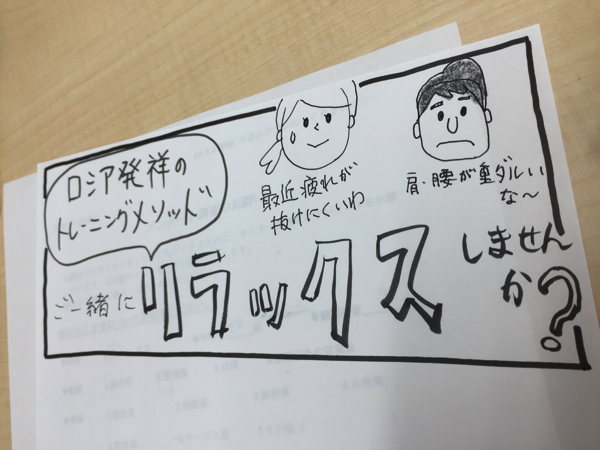 ロシア発祥の
トレーニングメソッド
最近疲れが
抜けにくいわ
肩・腰が重ダルい
な〜
ご一緒に
リラックス
しません
か?